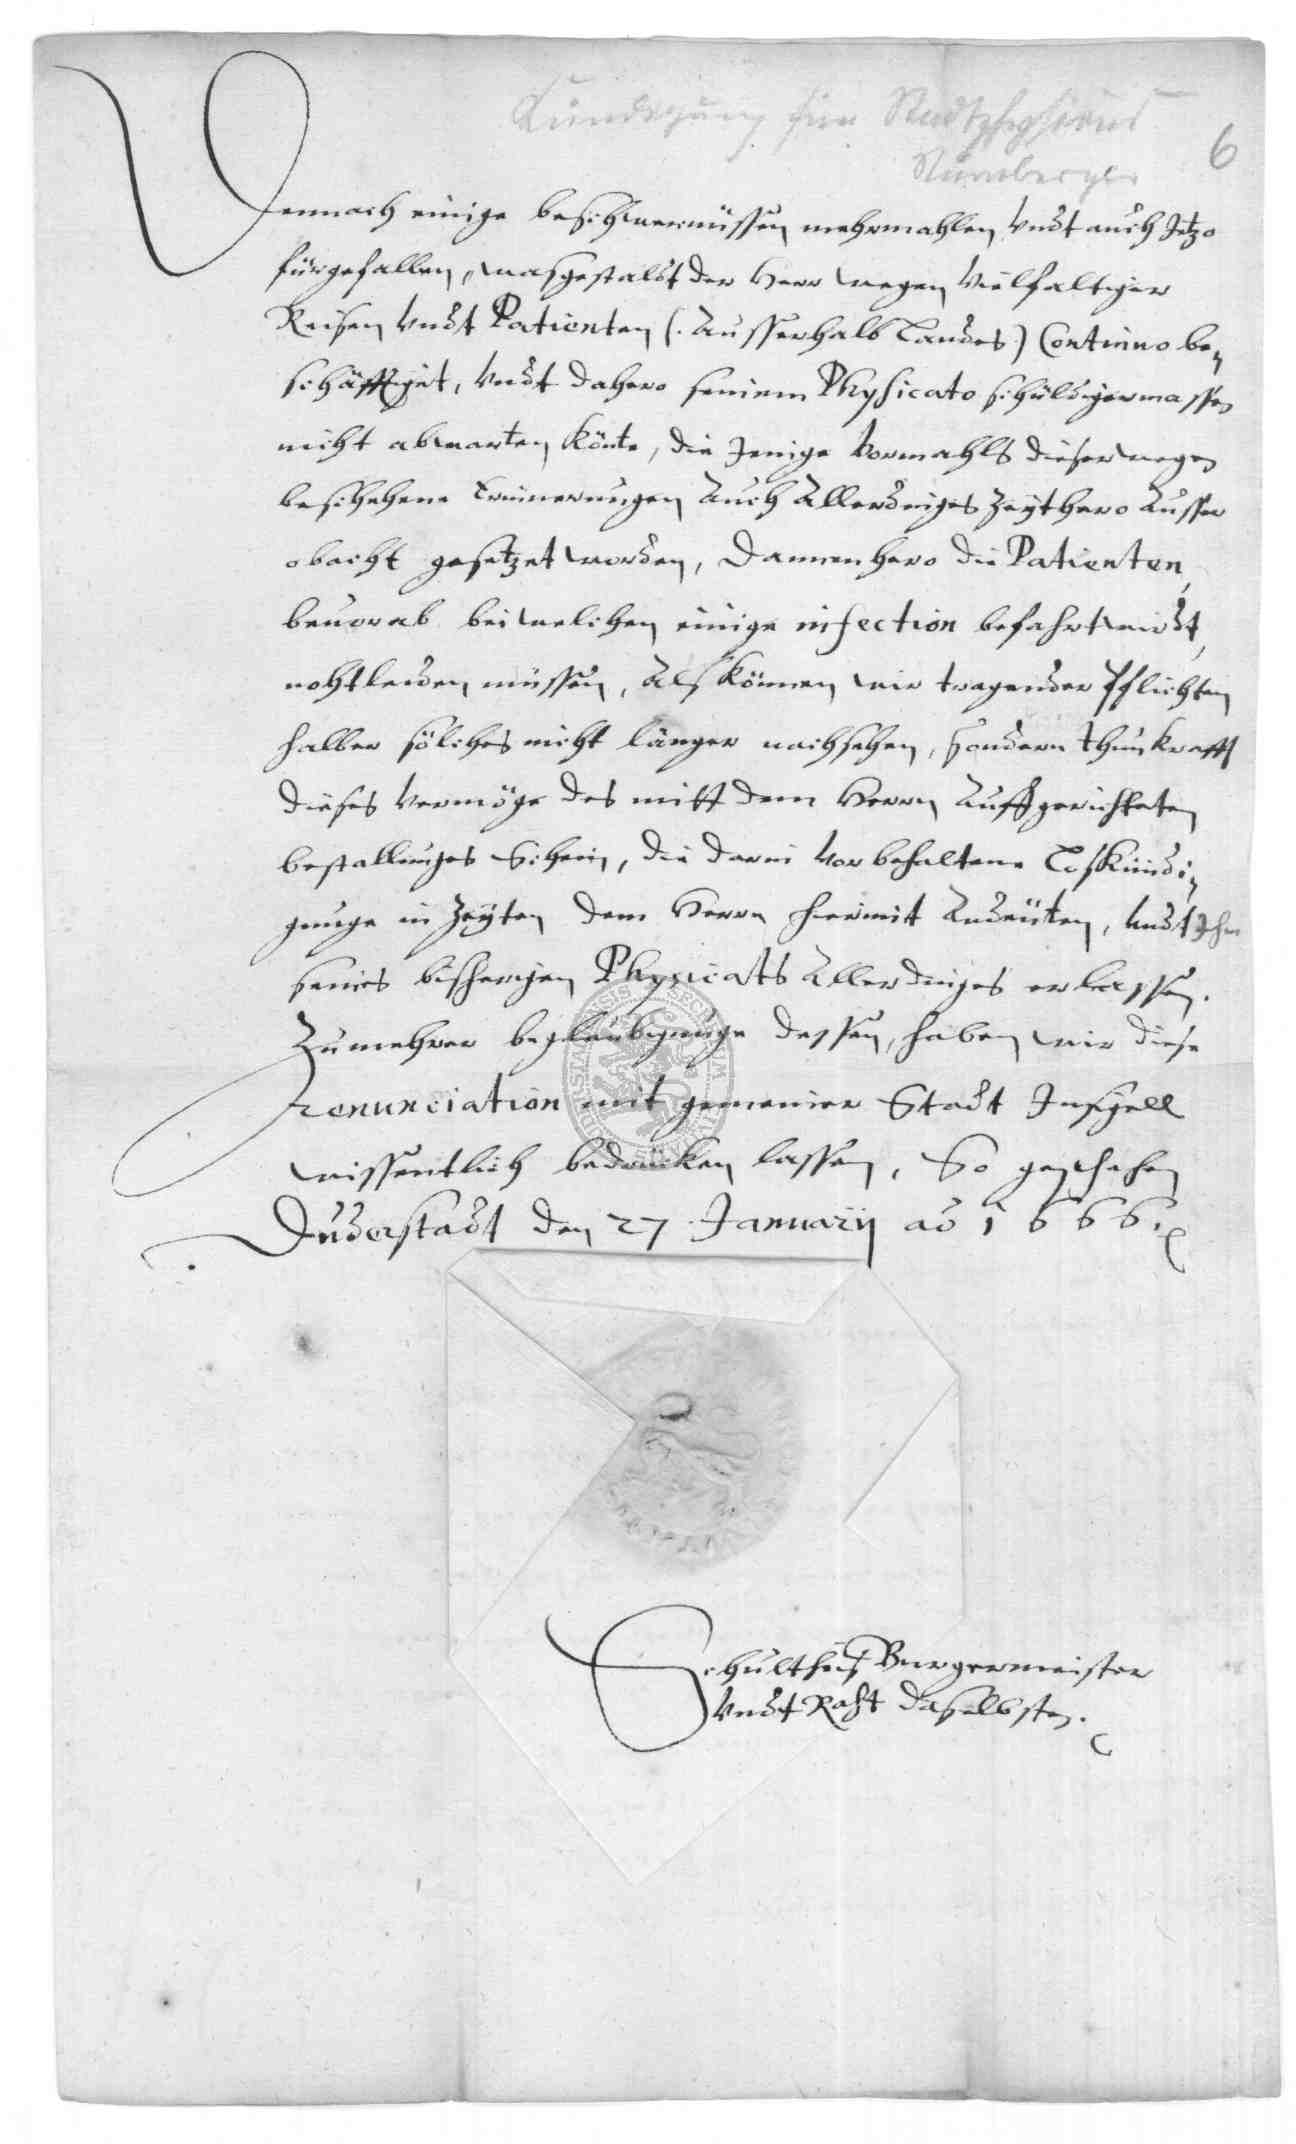 Kündigung für Stadtphysicus
Nürnberger
6
Demnach einige beschwernüssen mehrmahlen Undt auch Jetzo
fürgefallen, wasgestaldt der Herr wegen Vielfaltiger
Reisen Undt Patienten (: Ausserhalb Landes :) Continuo be,
schäfftiget, Undt dahero seinem Physicato schüldigermassen
nicht abwarten könte, die Jenige Vormahls dieserwegen
beschehene Erinnerungen Auch Allerdinges Zeythero Ausser
obacht gesetzet worden, Dannenhero die Patienten,
beuorab bei welchen einige infection befahrt wirdt,
nohtleiden müssen, Als können wir tragender Pflichten
halber sölches nicht länger nachsehen, sondern thun krafft
dieses Vermöge des mitt dem Herrn Auffgerichteten
bestallunges Schein, die darin Vorbehaltene Loskündi,
gunge in Zeyten dem Herrn hiermit Andeüten, Undt Ihn
seines bisherigen Physicats Allerdinges erlassen.
Zu mehrer beglaubigunge dessen, haben wir diese
renunciation mit gemeiner Stadt Insigell
wissentlich bedrücken lassen, So geschehen
Duderstadt den 27 Januarij ao 1666.
Schultheis Burgermeister
Undt Raht daselbsten.